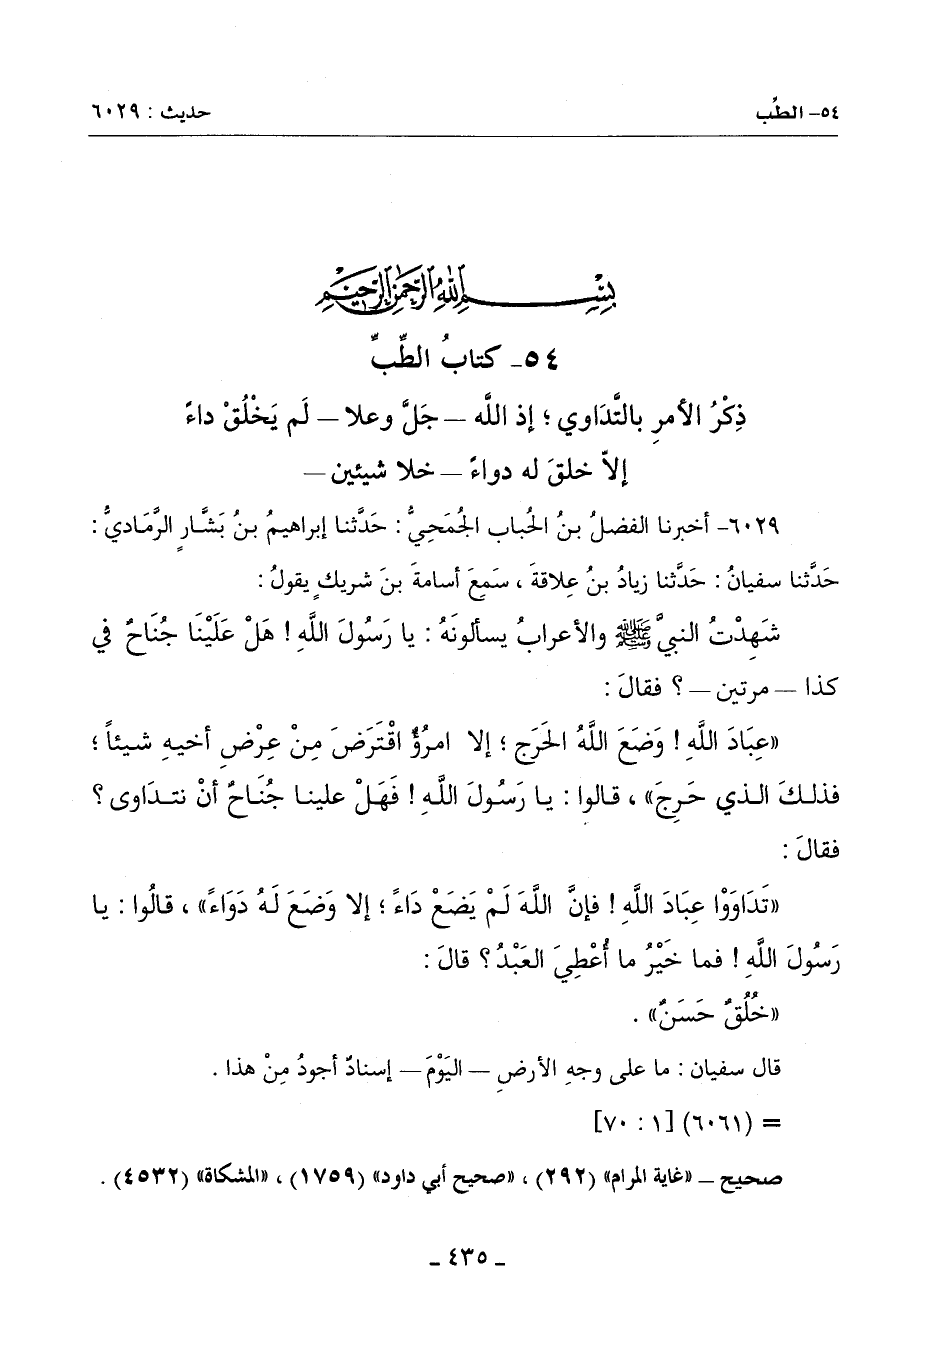 ٥٤- الطِّب
حديث : ٦٠٢٩
بِسْمِ اللهِ الرَّحْمٰنِ الرَّحِيمِ
٥٤- كتابُ الطِّبِّ
ذِكْرُ الأمرِ بالتَّدَاوي ؛ إذ اللَّه – جَلَّ وعلا – لَم يَخْلُقْ داءً
إلاّ خلقَ له دواءً – خلا شيئين –
٦٠٢٩- أخبرنا الفضلُ بنُ الحُباب الجُمَحِيُّ : حَدَّثنا إبراهيمُ بنُ بَشَّارٍ الرَّمَاديُّ :
حَدَّثنا سفيانُ : حَدَّثنا زيادُ بنُ عِلاقةَ ، سَمِعَ أسامةَ بنَ شريكٍ يقولُ :
شَهِدْتُ النبيَّ ﷺ والأعرابُ يسألونَهُ : يا رَسُولَ اللَّهِ ! هَلْ عَلَيْنَا جُنَاحٌ في
كذا – مرتين – ؟ فقالَ :
«عِبَادَ اللَّهِ ! وَضَعَ اللَّهُ الحَرَجَ ؛ إلا امرُؤٌ اقْتَرَضَ مِنْ عِرْضِ أخيهِ شيئاً ؛
فذلكَ الذي حَرِجَ» ، قالوا : يا رَسُولَ اللَّهِ ! فَهَلْ علينا جُنَاحٌ أنْ نتداوى ؟
فقالَ :
«تَدَاوَوْا عِبَادَ اللَّهِ ! فإنَّ اللَّهَ لَمْ يَضَعْ دَاءً ؛ إلا وَضَعَ لَهُ دَوَاءً» ، قالُوا : يا
رَسُولَ اللَّهِ ! فما خَيْرُ ما أُعْطِيَ العَبْدُ ؟ قالَ :
«خُلُقٌ حَسَنٌ» .
قال سفيان : ما على وجهِ الأرضِ – اليَوْمَ – إسنادٌ أجودُ مِنْ هذا .
= (٦٠٦١) [١ : ٧٠]
صحيح – «غاية المرام» (٢٩٢) ، «صحيح أبي داود» (١٧٥٩) ، «المشكاة» (٤٥٣٢) .
- ٤٣٥ -